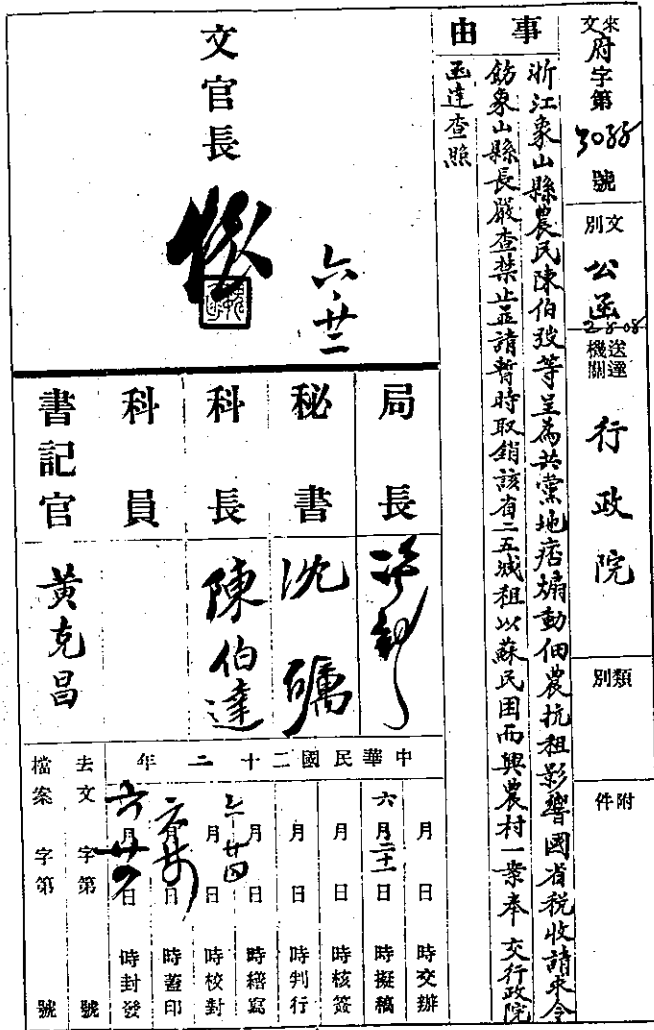 來文 府字第3055號
文別 公函
送達機關 行政院
類別
附件
事由
浙江象山縣農民陳伯弢等呈為共黨地痞煽動佃農抗租影響國省稅收請求令
飭象山縣長嚴查禁止並請暫時取銷該省二五減租以蘇民困而興農村一案奉 交行政院
函達查照
文官長
六廿二
局長
秘書 沈礪
科長 陳伯達
科員
書記官 黃克昌
中華民國二十二年
月 日 時交辦
六月二十一日 時擬稿
月 日 時核簽
月 日 時判行
月 日 時繕寫
六月廿四日 時校對
月 日 時蓋印
六月廿四日 時封發
去文 字第 號
檔案 字第 號